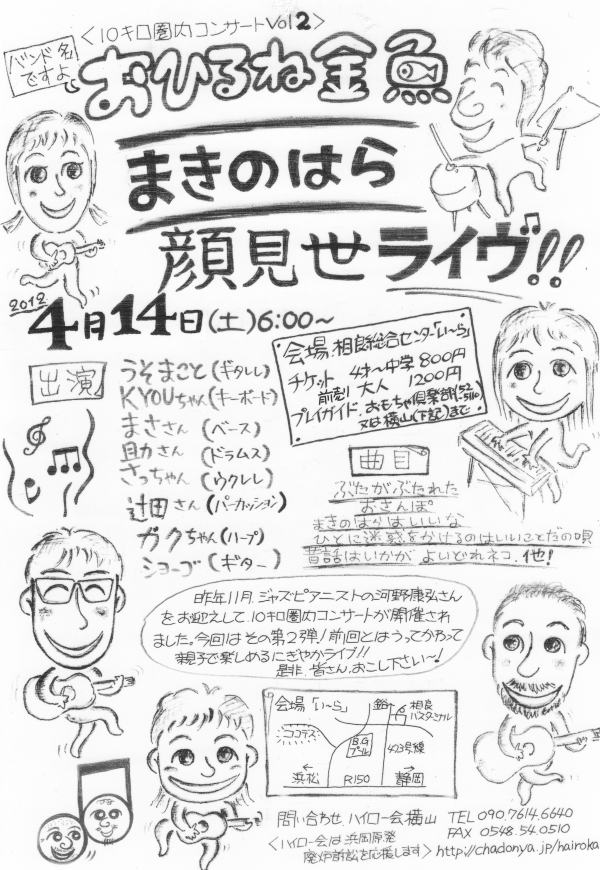 〈10キロ圏内コンサートVol2〉
バンド名
ですよ
おひるね金魚
まきのはら
顔見せライヴ!!
2012
4月14日(土)6:00〜
会場.相良総合センター「い〜ら」
チケット 4才〜中学 800円
前売り 大人 1200円
プレイガイド.おもちゃ倶楽部(52-5110)
又は横山(下記)まで
出演
うそまこと(ギタレレ)
KYOUちゃん(キーボード)
まささん (ベース)
さん (ドラムス)
さっちゃん (ウクレレ)
辻田さん (パーカッション)
ガクちゃん(ハープ)
ショーゴ(ギター)
曲目
ぶたがぶたれた
おさんぽ
まきのはらはいいな
ひとに迷惑をかけるのはいいことだの唄
昔話はいかが よいどれネコ.他!
昨年11月.ジャズピアニストの河野康弘さん
をお迎えして.10キロ圏内コンサートが開催され
ました。今回はその第2弾!前回とはうってかわって
親子で楽しめるにぎやかライブ!!
是非.皆さん.おこし下さい〜!
会場「い〜ら」
相良
バスターミナル
ココデス
B&G
プール
423号線
浜松
R150
静岡
問い合わせ.ハイロー会.横山 TEL 090.7614.6640
FAX 0548.54.0510
〈ハイロー会は浜岡原発
廃炉訴訟を応援します〉http://chadonya.jp/hairoka